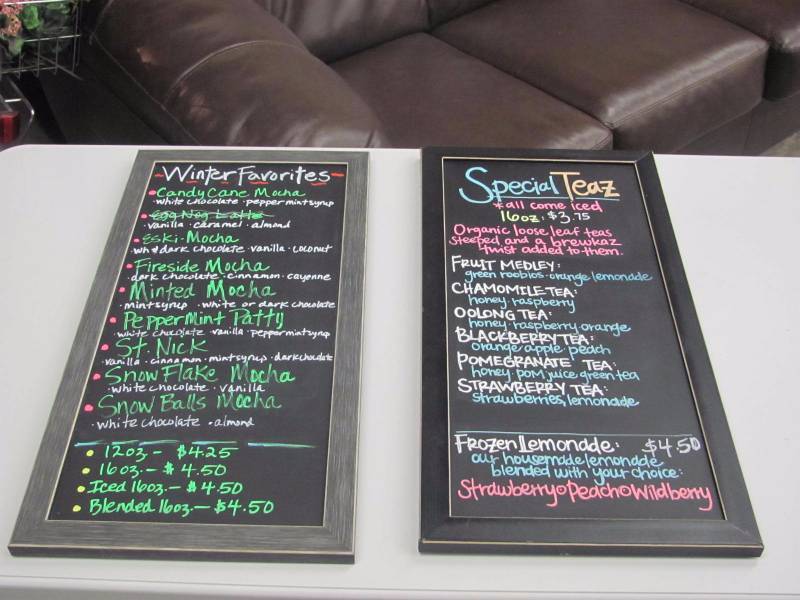 Winter Favorites
Candy Cane Mocha
white chocolate · peppermint syrup
Egg Nog Latte
vanilla · caramel · almond
Eski-Mocha
wh & dark chocolate · vanilla · coconut
Fireside Mocha
· dark chocolate · cinnamon · cayenne
Minted Mocha
· mint syrup · white or dark chocolate
PepperMint Patty
· white chocolate · vanilla · peppermint syrup
St. Nick
vanilla · cinnamon · mint syrup · dark chocolate
Snow Flake Mocha
· white chocolate · vanilla
Snow Balls Mocha
· white chocolate · almond
12oz – $4.25
16oz. – $4.50
Iced 16oz. – $4.50
Blended 16oz. – $4.50
Special Teaz
*all come iced
16oz: $3.75
Organic loose leaf teas
steeped and a brewkaz
twist added to them.
Fruit Medley:
green rooibos · orange lemonade
Chamomile Tea:
honey · raspberry
Oolong Tea:
honey · raspberry · orange
Blackberry Tea:
orange · apple · peach
Pomegranate Tea:
honey · pom juice · green tea
Strawberry Tea:
strawberries, lemonade
Frozen Lemonade: $4.50
our housemade lemonade
blended with your choice:
Strawberry o Peach o Wildberry